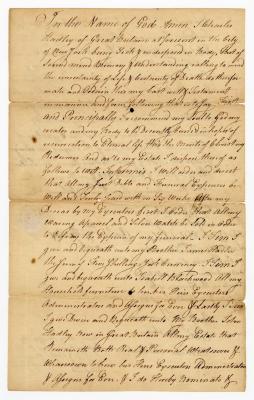 In the Name of God Amen I Charles
Hadley of Great Britain at present in the City
of New York being Sick & indisposed in Body, But of
Sound mind Memory & Understanding calling to mind
the uncertainty of Life & Certainty of Death do therefore
make and Ordain this my Last Will & Testament
in manner and Form following that is to Say First
and Principally I recommend my Soul to God my
Creator and my Body to be decently buried in hopes of
resurrection to Eternal life thro the Merits of
Redeemer And as to my Estate I dispose thereof as
follows to Wit I will order and direct
that all my Just Debts and Funeral Expences be
well and Truly Paid with in Six after my
Decease by my Executors first I Order that all my
wearing Apparel and Silver Watch be Sold in order
to Defray the Expence of my funeral I
give and Bequeath unto my Brother
the Sum of Five Shillings York Currency
give and bequeath unto all my
Household furniture to her
Administrators and Assigns for Ever Lastly I
give Devise and Bequeath unto My Brother John
Hadley Now in Great Britain all my Estate that
Remaineth Both Real & Personal Whatsoever &
Wheresoever to him his Heirs Executors Administrators
& Assigns for Ever & I do Hereby Nominate &